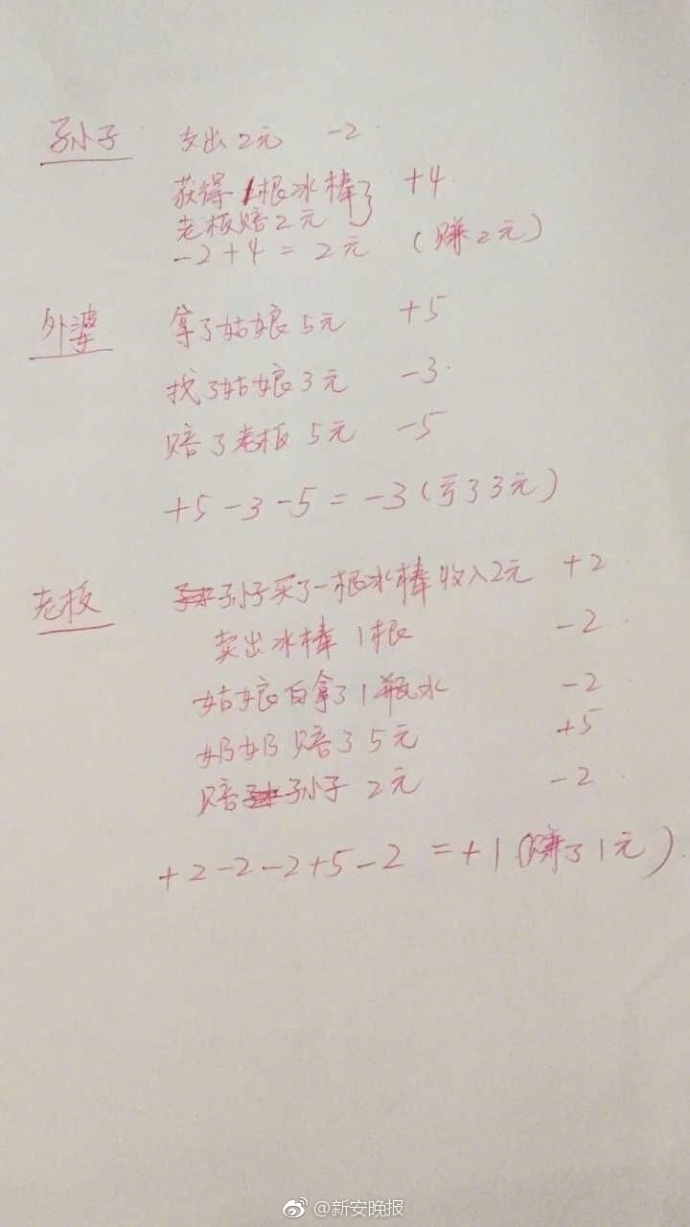 孙子 支出2元 -2
获得1根冰棒 +4
老板赔2元
-2+4=2元 (赚2元)
外婆 拿了姑娘5元 +5
找了姑娘3元 -3
赔了老板5元 -5
+5-3-5=-3(亏了3元)
老板 孙子买了一根冰棒收入2元 +2
卖出冰棒1根 -2
姑娘白拿了1瓶水 -2
奶奶赔了5元 +5
赔孙子2元 -2
+2-2-2+5-2=+1(赚了1元)
@新安晚报